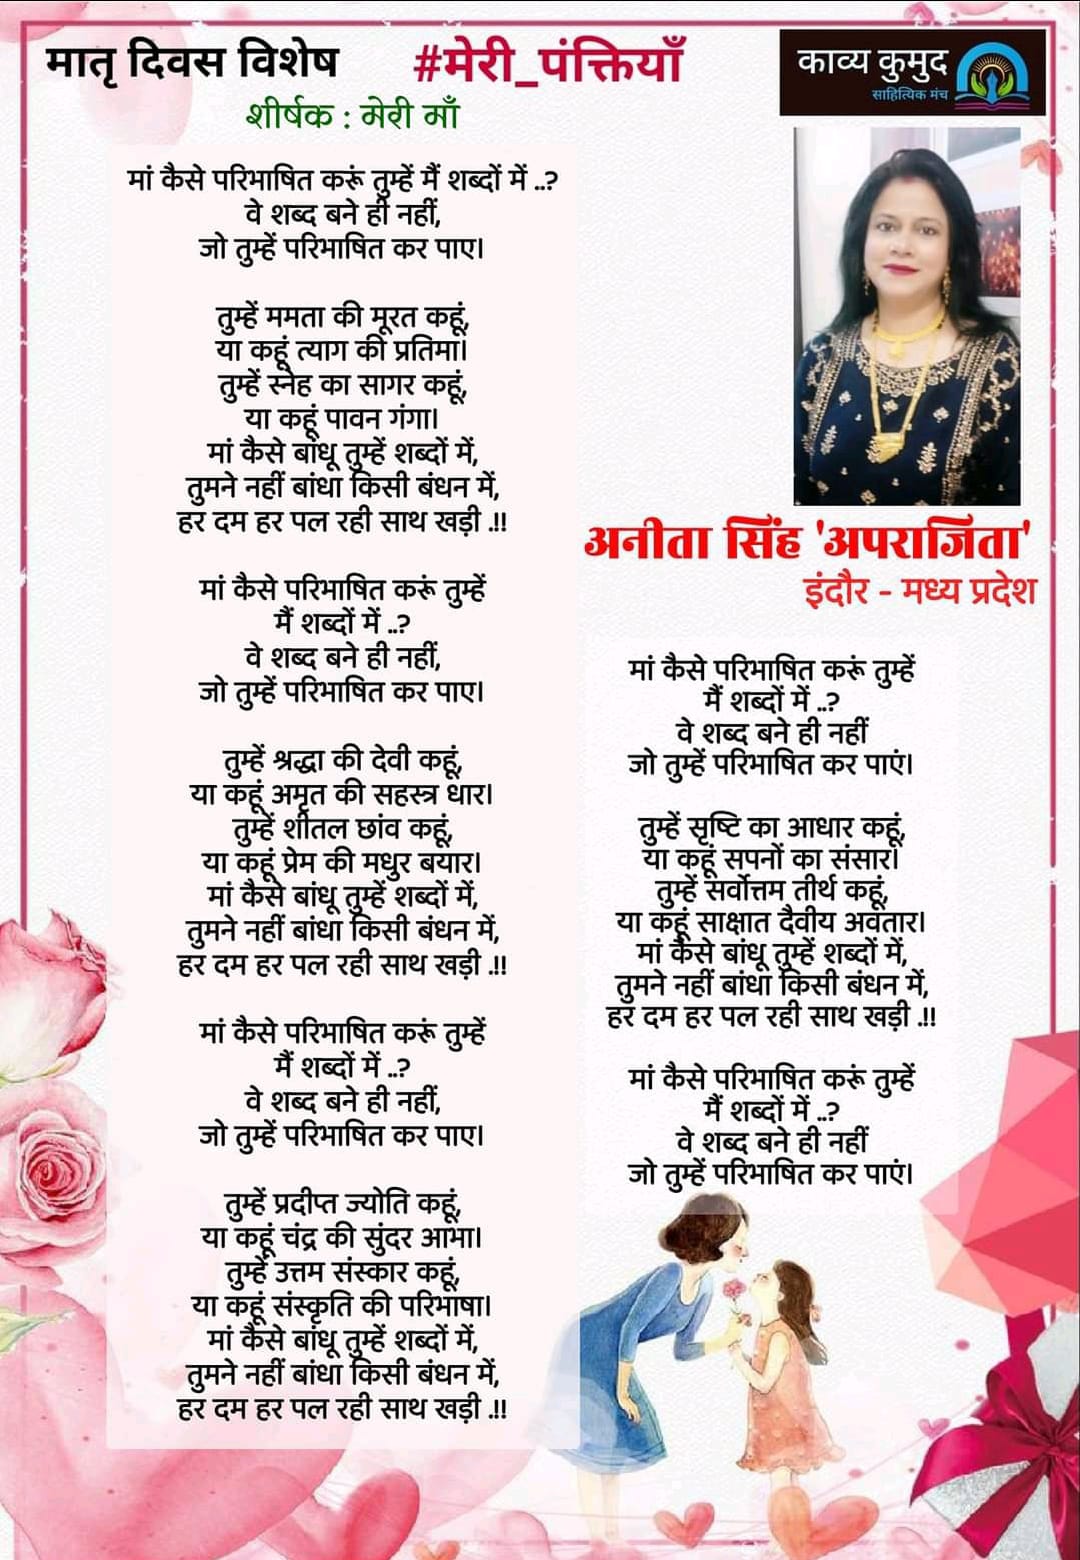 मातृ दिवस विशेष #मेरी_पंक्तियाँ
काव्य कुमुद
साहित्यिक मंच
शीर्षक : मेरी माँ
मां कैसे परिभाषित करूं तुम्हें मैं शब्दों में ..?
वे शब्द बने ही नहीं,
जो तुम्हें परिभाषित कर पाए।
तुम्हें ममता की मूरत कहूं,
या कहूं त्याग की प्रतिमा।
तुम्हें स्नेह का सागर कहूं,
या कहूं पावन गंगा।
मां कैसे बांधू तुम्हें शब्दों में,
तुमने नहीं बांधा किसी बंधन में,
हर दम हर पल रही साथ खड़ी .!!
मां कैसे परिभाषित करूं तुम्हें
मैं शब्दों में ..?
वे शब्द बने ही नहीं,
जो तुम्हें परिभाषित कर पाए।
तुम्हें श्रद्धा की देवी कहूं,
या कहूं अमृत की सहस्त्र धार।
तुम्हें शीतल छांव कहूं,
या कहूं प्रेम की मधुर बयार।
मां कैसे बांधू तुम्हें शब्दों में,
तुमने नहीं बांधा किसी बंधन में,
हर दम हर पल रही साथ खड़ी .!!
मां कैसे परिभाषित करूं तुम्हें
मैं शब्दों में ..?
वे शब्द बने ही नहीं,
जो तुम्हें परिभाषित कर पाए।
तुम्हें प्रदीप्त ज्योति कहूं,
या कहूं चंद्र की सुंदर आभा।
तुम्हें उत्तम संस्कार कहूं,
या कहूं संस्कृति की परिभाषा।
मां कैसे बांधू तुम्हें शब्दों में,
तुमने नहीं बांधा किसी बंधन में,
हर दम हर पल रही साथ खड़ी .!!
अनीता सिंह 'अपराजिता'
इंदौर - मध्य प्रदेश
मां कैसे परिभाषित करूं तुम्हें
मैं शब्दों में ..?
वे शब्द बने ही नहीं
जो तुम्हें परिभाषित कर पाएं।
तुम्हें सृष्टि का आधार कहूं,
या कहूं सपनों का संसार।
तुम्हें सर्वोत्तम तीर्थ कहूं,
या कहूं साक्षात दैवीय अवतार।
मां कैसे बांधू तुम्हें शब्दों में,
तुमने नहीं बांधा किसी बंधन में,
हर दम हर पल रही साथ खड़ी .!!
मां कैसे परिभाषित करूं तुम्हें
मैं शब्दों में ..?
वे शब्द बने ही नहीं
जो तुम्हें परिभाषित कर पाएं।